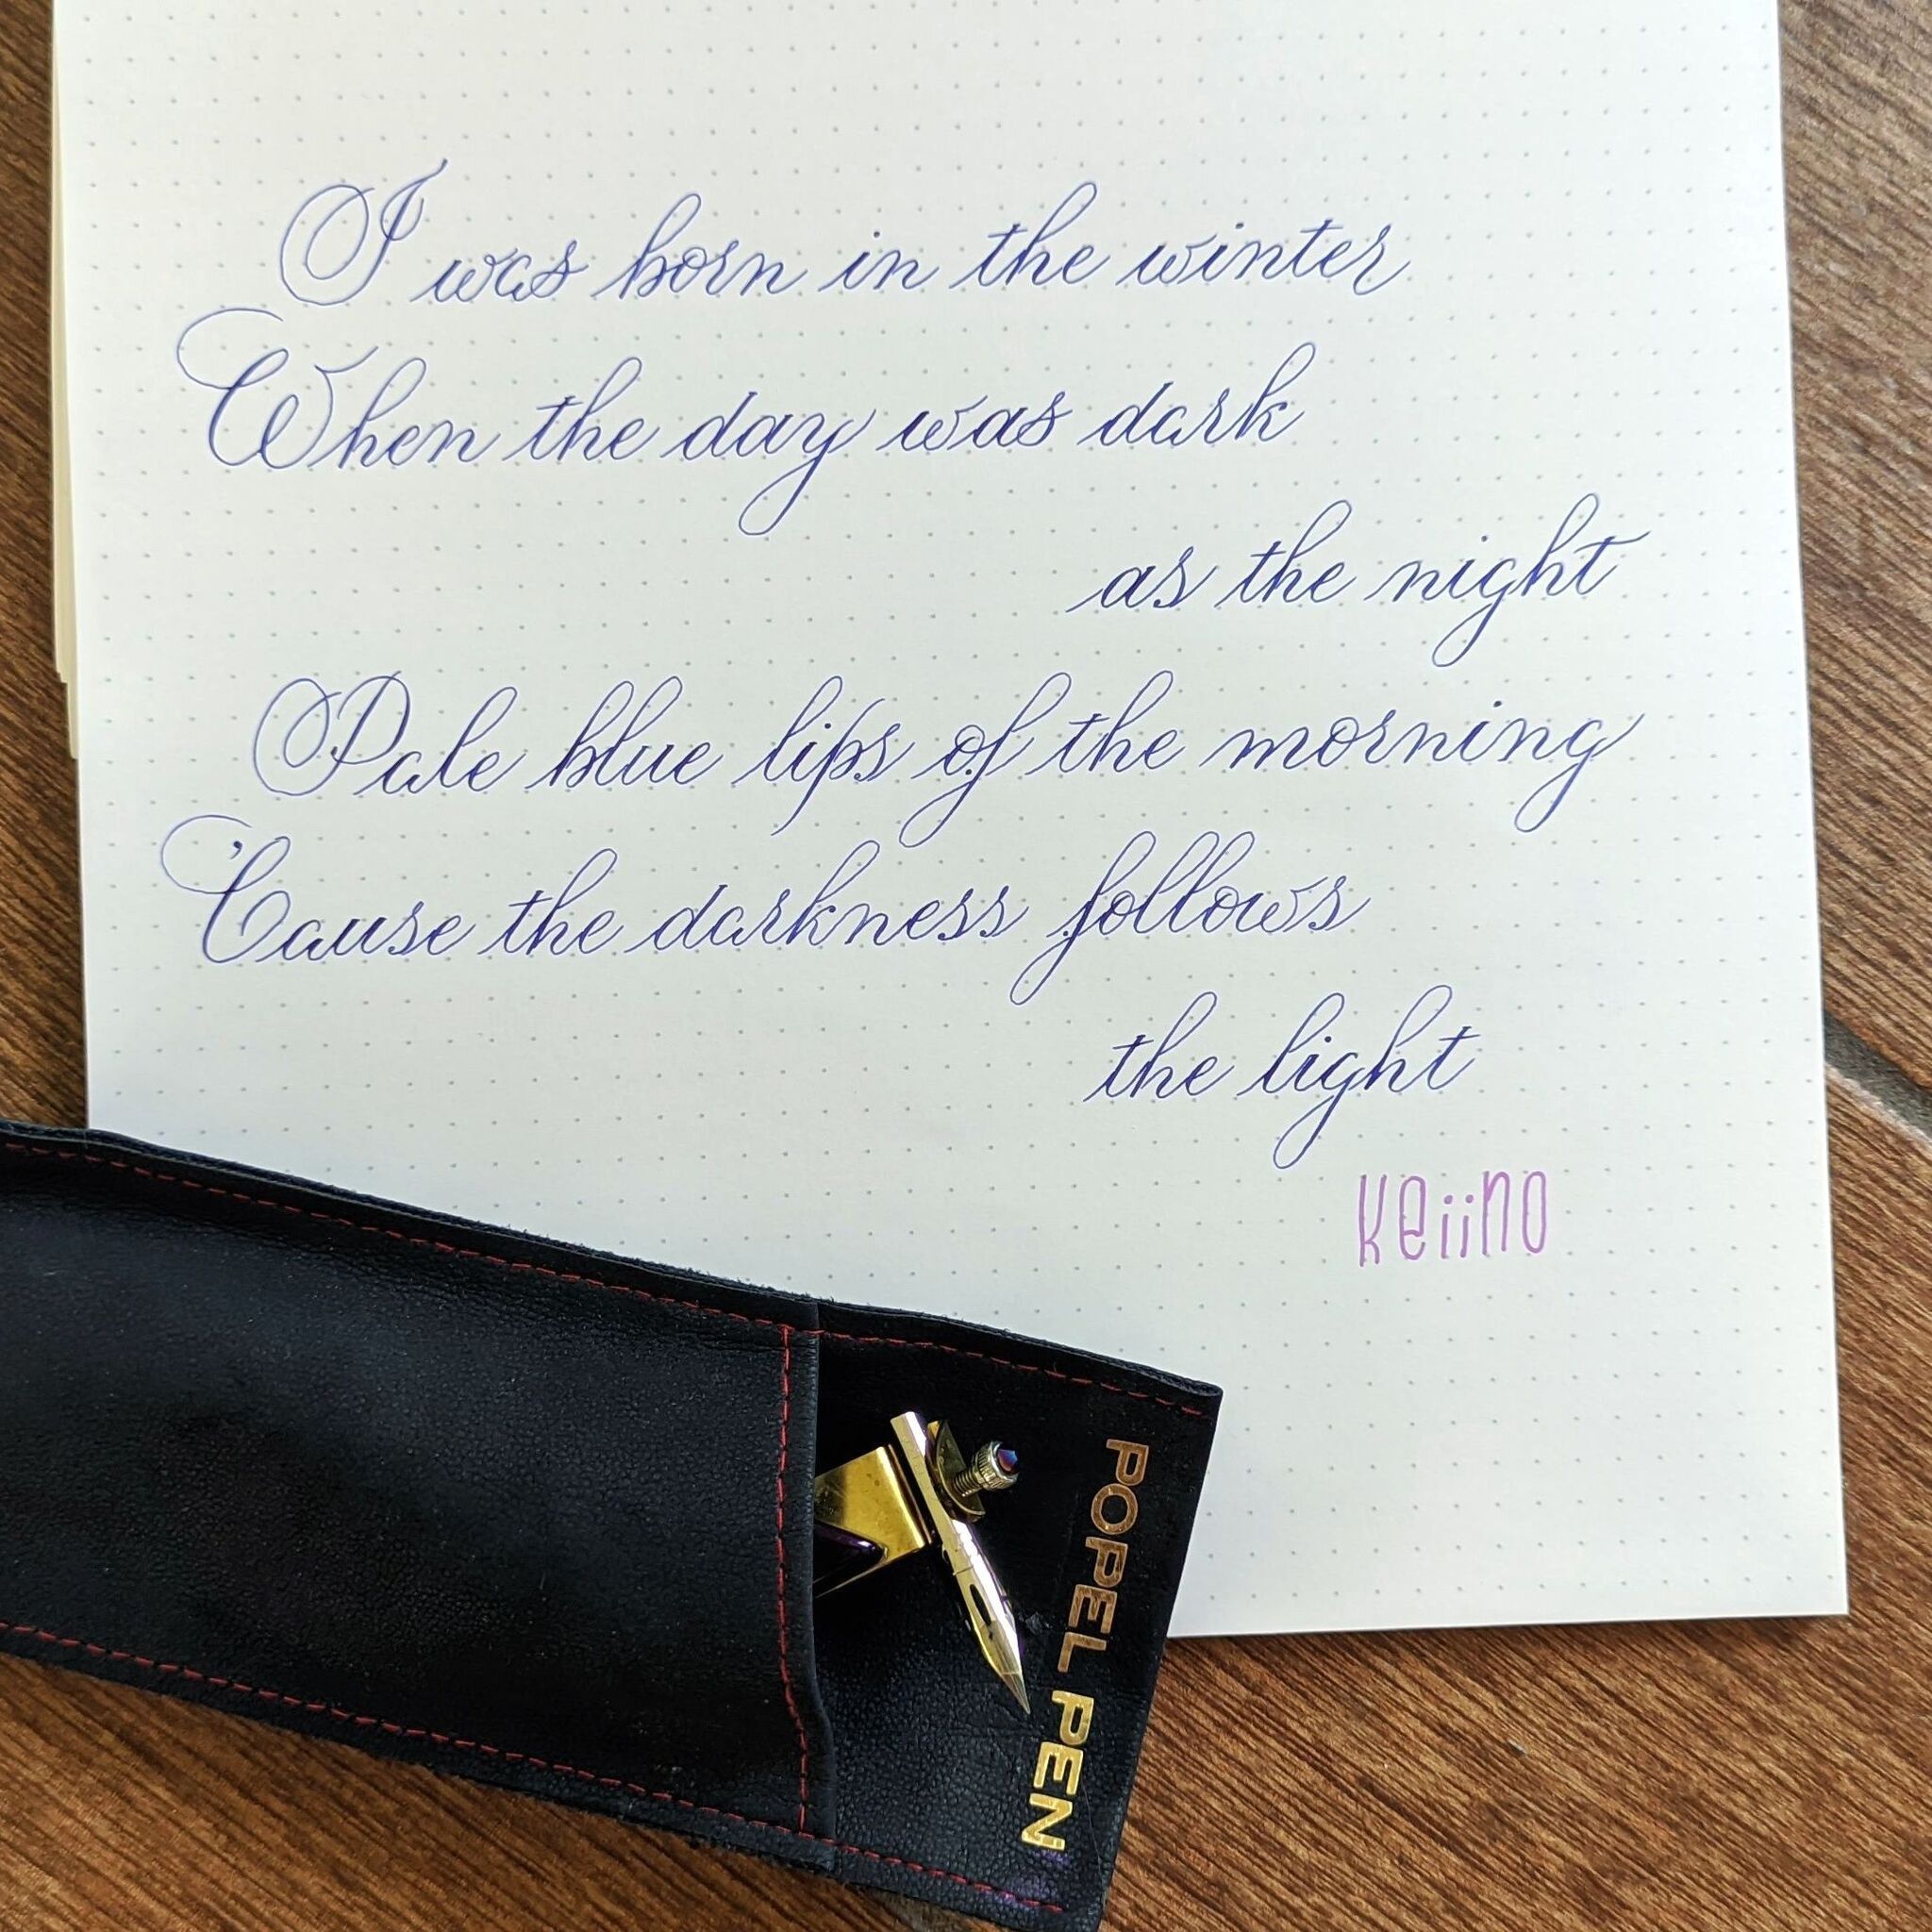 I was born in the winter
When the day was dark
as the night
Pale blue lips of the morning
'Cause the darkness follows
the light
Keiino
POPEL PEN